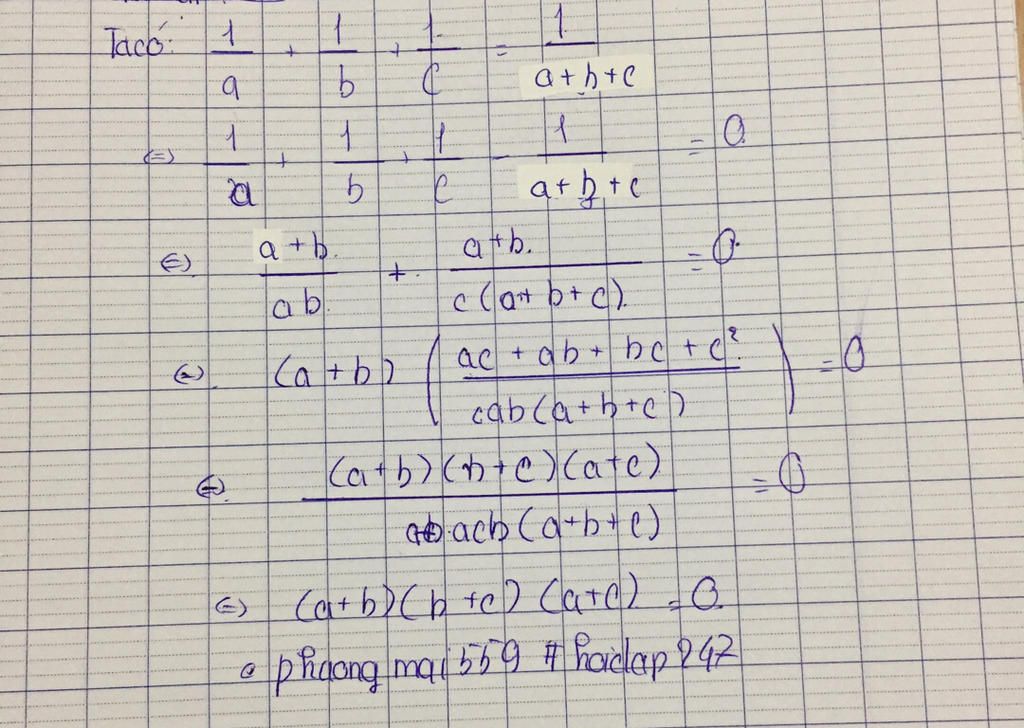 Ta có: 1/a + 1/b + 1/c = 1/(a+b+c)
(=) 1/a + 1/b + 1/c - 1/(a+b+c) = 0
(=) (a+b)/(ab) + (a+b)/(c(a+b+c)) = 0
(=) (a+b) ((ac + ab + bc + c²)/(cab(a+b+c))) = 0
(=) ((a+b)(b+c)(a+c))/(acb(a+b+c)) = 0
(=) (a+b)(b+c)(a+c) = 0
phuong mai 559 # hoidap 247